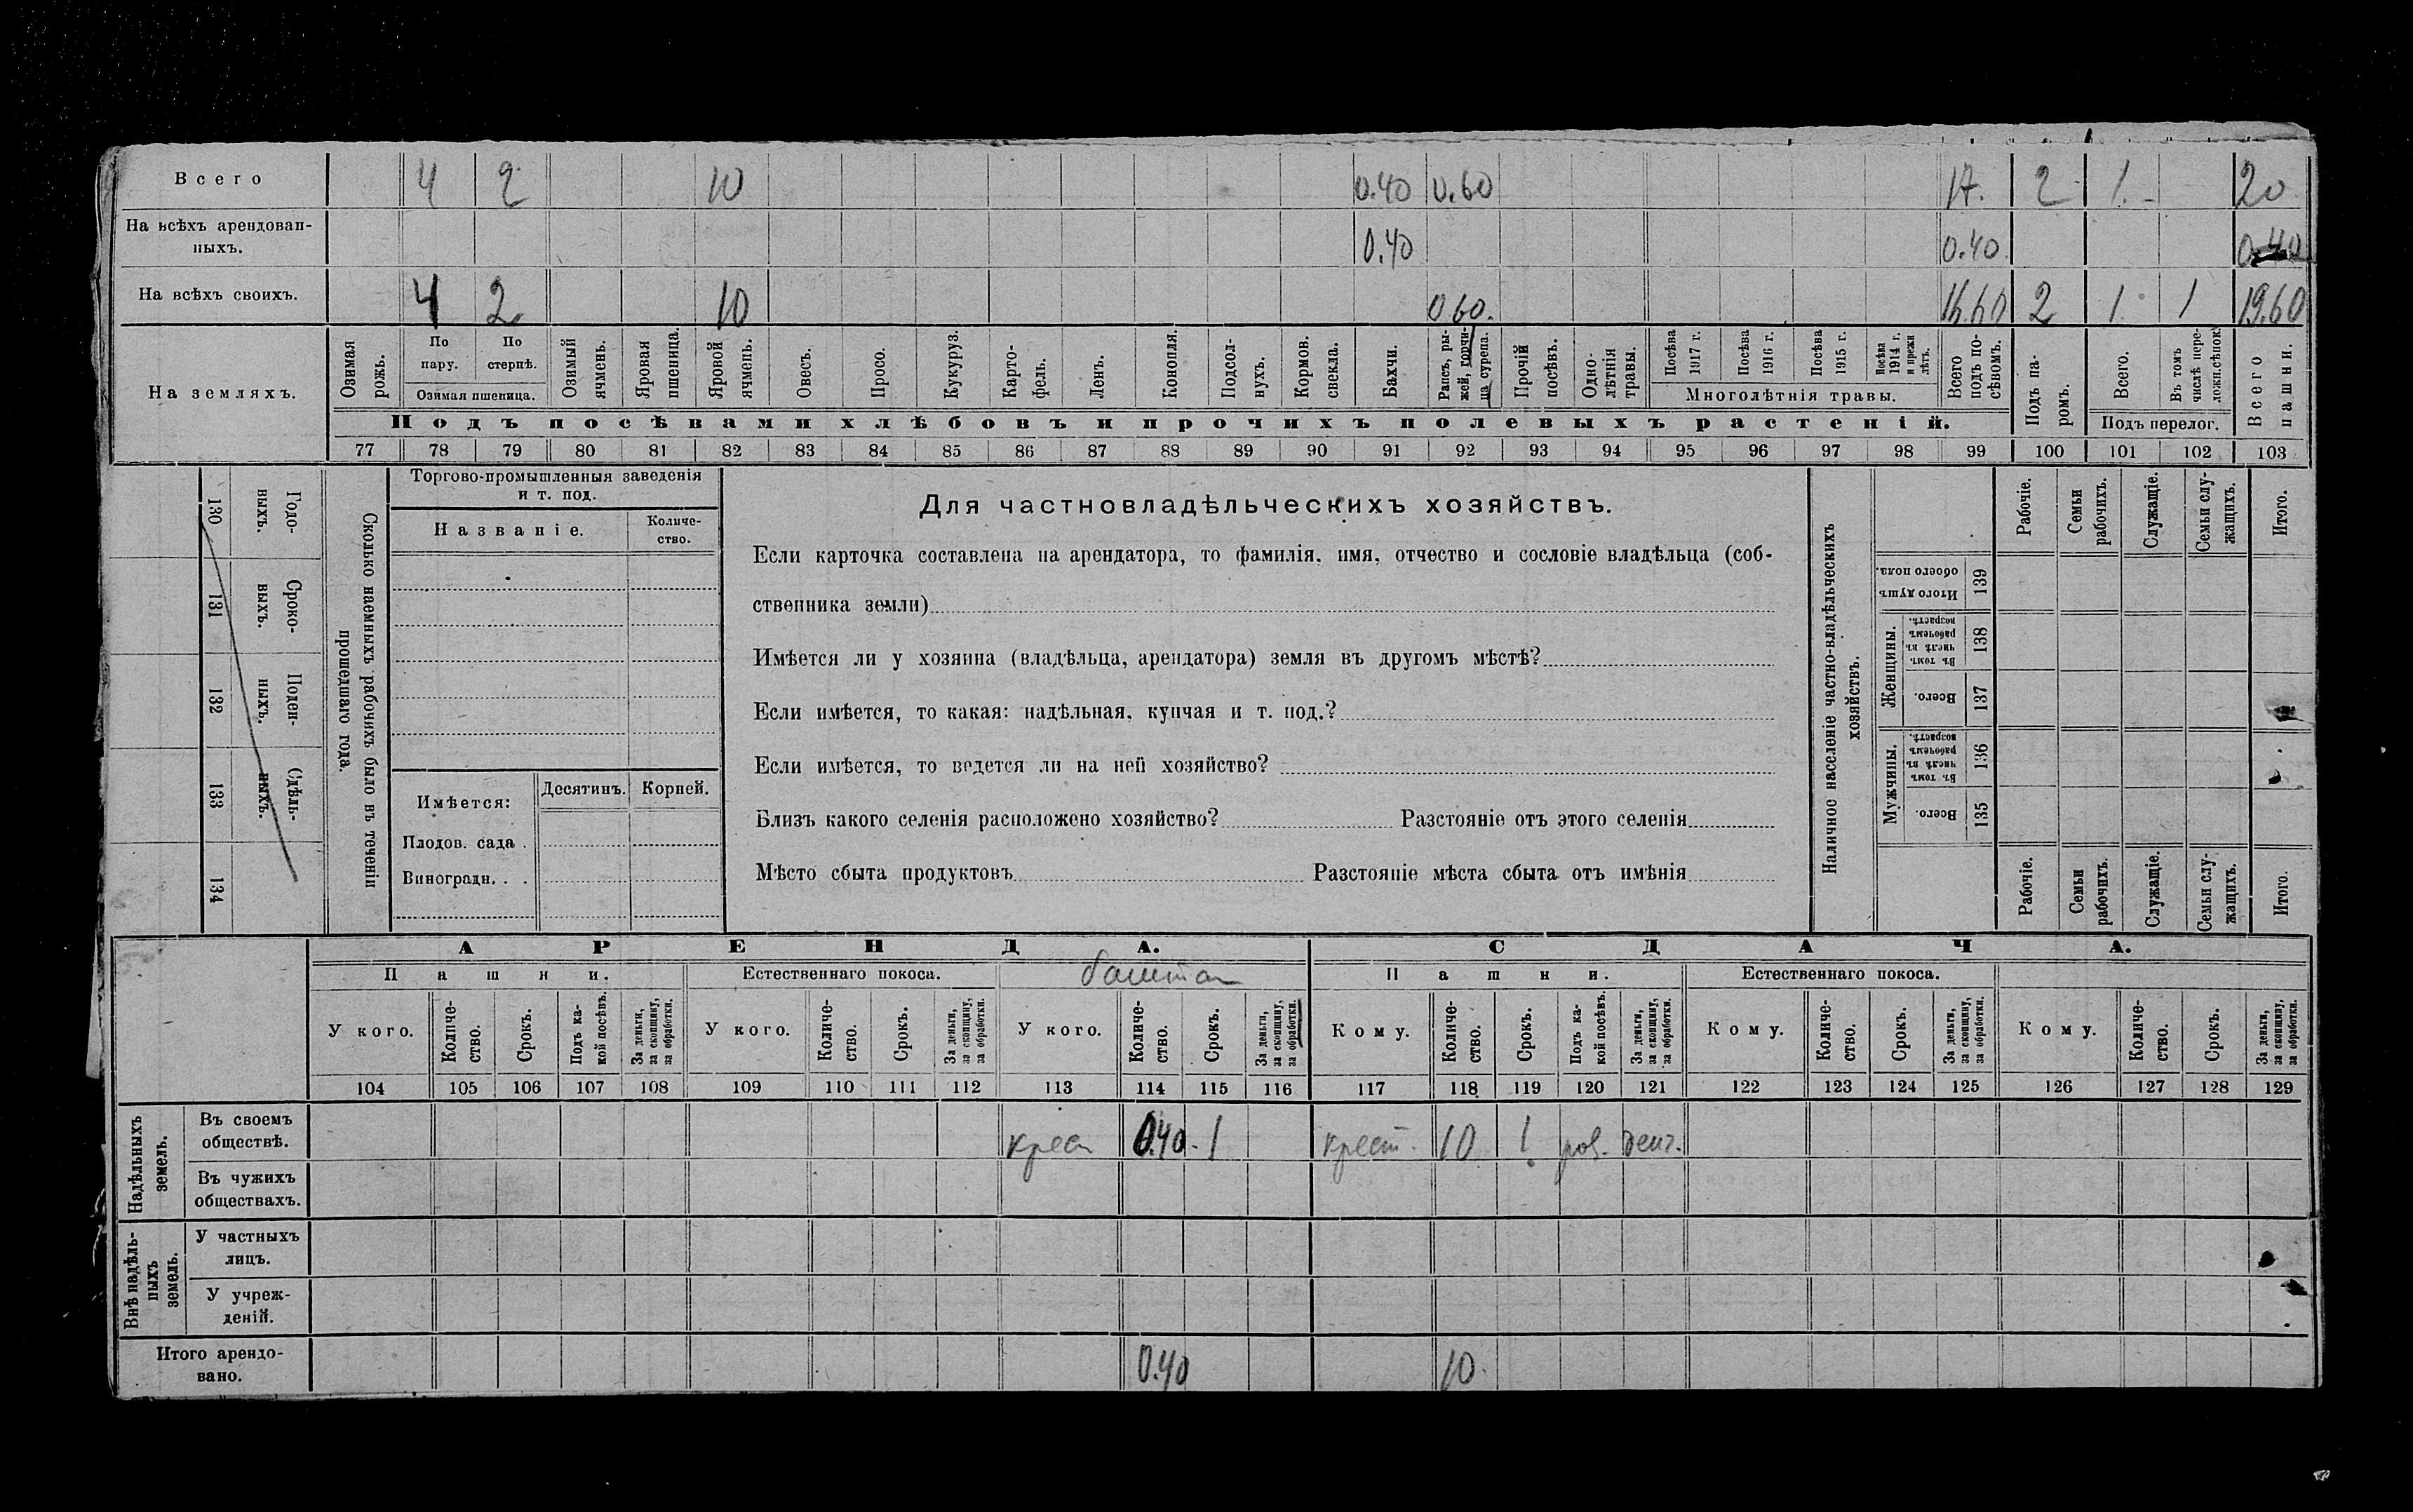 Всего 4 2 10 0.40 0.60 17. 2 1. 20
На всѣхъ арендован-
ныхъ. 0.40 0.40 0.40
На всѣхъ своихъ. 4 2 10 0.60. 16.60 2 1 1 19.60
На земляхъ.
Озимая рожь.
По пару.
По стернѣ.
Озимая пшеница.
Озимый ячмень.
Яровая пшеница.
Яровой ячмень.
Овесъ.
Просо.
Кукуруз.
Карто-
фель.
Ленъ.
Конопля.
Подсол-
нухъ.
Кормов. свекла.
Бахчи.
Рапсъ, ры-
жей, горчи-
ца сурепа.
Прочій посѣвъ.
Одно-
лѣтнія травы.
Посѣва 1917 г.
Посѣва 1916 г.
Посѣва 1915 г.
Посѣва 1914 г. и прежн лѣтъ.
Многолѣтнія травы.
Всего подъ по-
сѣвомъ.
Подъ па-
ромъ.
Всего.
Въ томъ числѣ
Подъ перелог.
Всего пашни.
Подъ посѣвами хлѣбовъ и прочихъ полевыхъ растеній.
77 78 79 80 81 82 83 84 85 86 87 88 89 90 91 92 93 94 95 96 97 98 99 100 101 102 103
130 Годо-
выхъ.
131 Сроко-
выхъ.
132 Поден-
ныхъ.
133 Сдѣль-
ныхъ.
134
Сколько наемныхъ рабочихъ было въ теченіи
прошедшаго года.
Торгово-промышленныя заведенія
и т. под.
Названіе. Количе-
ство.
Имѣется: Десятинъ. Корней.
Плодов. сада .
Виноградн. . .
Для частновладѣльческихъ хозяйствъ.
Если карточка составлена на арендатора, то фамилія, имя, отчество и сословіе владѣльца (соб-
ственника земли)
Имѣется ли у хозяина (владѣльца, арендатора) земля въ другомъ мѣстѣ?
Если имѣется, то какая: надѣльная, купчая и т. под.?
Если имѣется, то ведется ли на ней хозяйство?
Близъ какого селенія расположено хозяйство? Разстояніе отъ этого селенія
Мѣсто сбыта продуктовъ Разстояніе мѣста сбыта отъ имѣнія
Наличное населеніе частно-владѣльческихъ
хозяйствъ.
Рабочіе. Семьи рабочихъ. Служащіе. Семьи слу-
жащихъ. Итого.
Итого душъ обоего пола. 139
Женщины.
Въ томъ числѣ въ рабочемъ возрастѣ. 138
Всего. 137
Мужчины.
Въ томъ числѣ въ рабочемъ возрастѣ. 136
Всего. 135
Рабочіе. Семьи рабочихъ. Служащіе. Семьи слу-
жащихъ. Итого.
АРЕНДА. СДАЧА.
Пашни. Естественнаго покоса. баштан Пашни. Естественнаго покоса.
У кого. Количе-
ство. Срокъ. Подъ ка-
кой посѣвъ. За деньги, за скопщину, за обработки.
У кого. Количе-
ство. Срокъ. За деньги, за скопщину, за обработки.
У кого. Количе-
ство. Срокъ. За деньги, за скопщину, за обработки.
Кому. Количе-
ство. Срокъ. Подъ ка-
кой посѣвъ. За деньги, за скопщину, за обработки.
Кому. Количе-
ство. Срокъ. За деньги, за скопщину, за обработки.
Кому. Количе-
ство. Срокъ. За деньги, за скопщину, за обработки.
104 105 106 107 108 109 110 111 112 113 114 115 116 117 118 119 120 121 122 123 124 125 126 127 128 129
Надѣльныхъ земель.
Въ своемъ
обществѣ. крес 0.40. 1 крест. 10 1 денг.
Въ чужихъ
обществахъ.
Внѣ надѣль-
ныхъ земель.
У частныхъ
лицъ.
У учреж-
деній.
Итого арендо-
вано. 0.40 10.